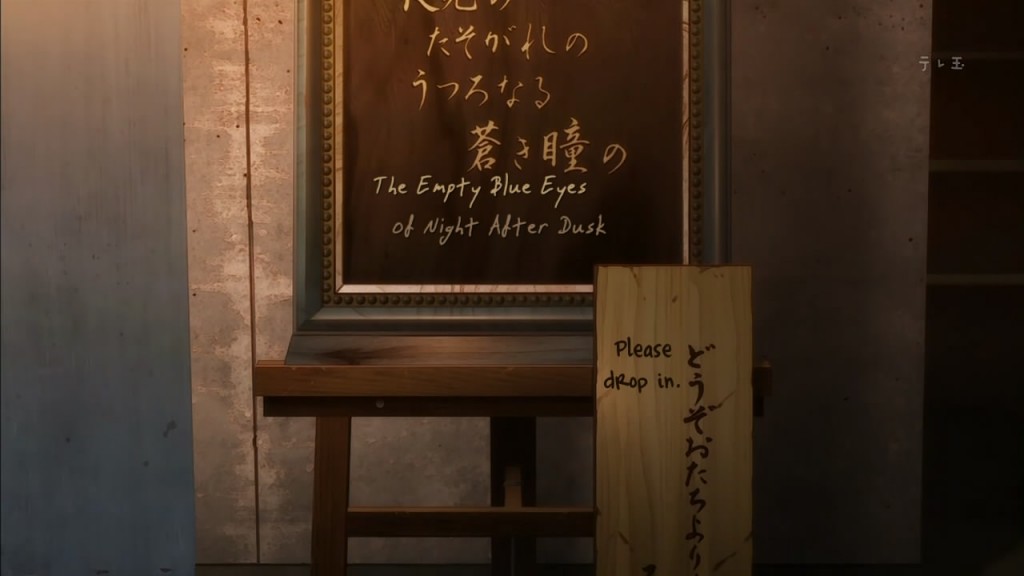 たそがれの
うつろなる
蒼き瞳の
The Empty Blue Eyes
of Night After Dusk
テレ玉
Please
dRop in.
どうぞおたちより